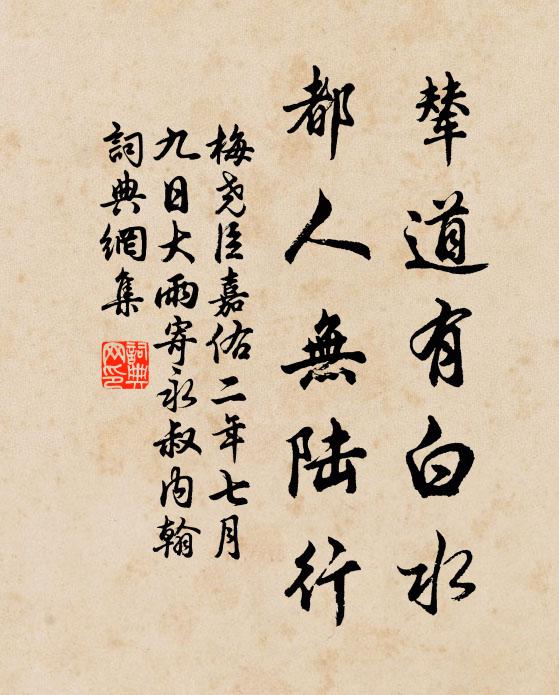 輦道有白水
都人無陸行
梅堯臣嘉佑二年七月
九日大雨寄永叔内翰
詞典網集
詞典網印